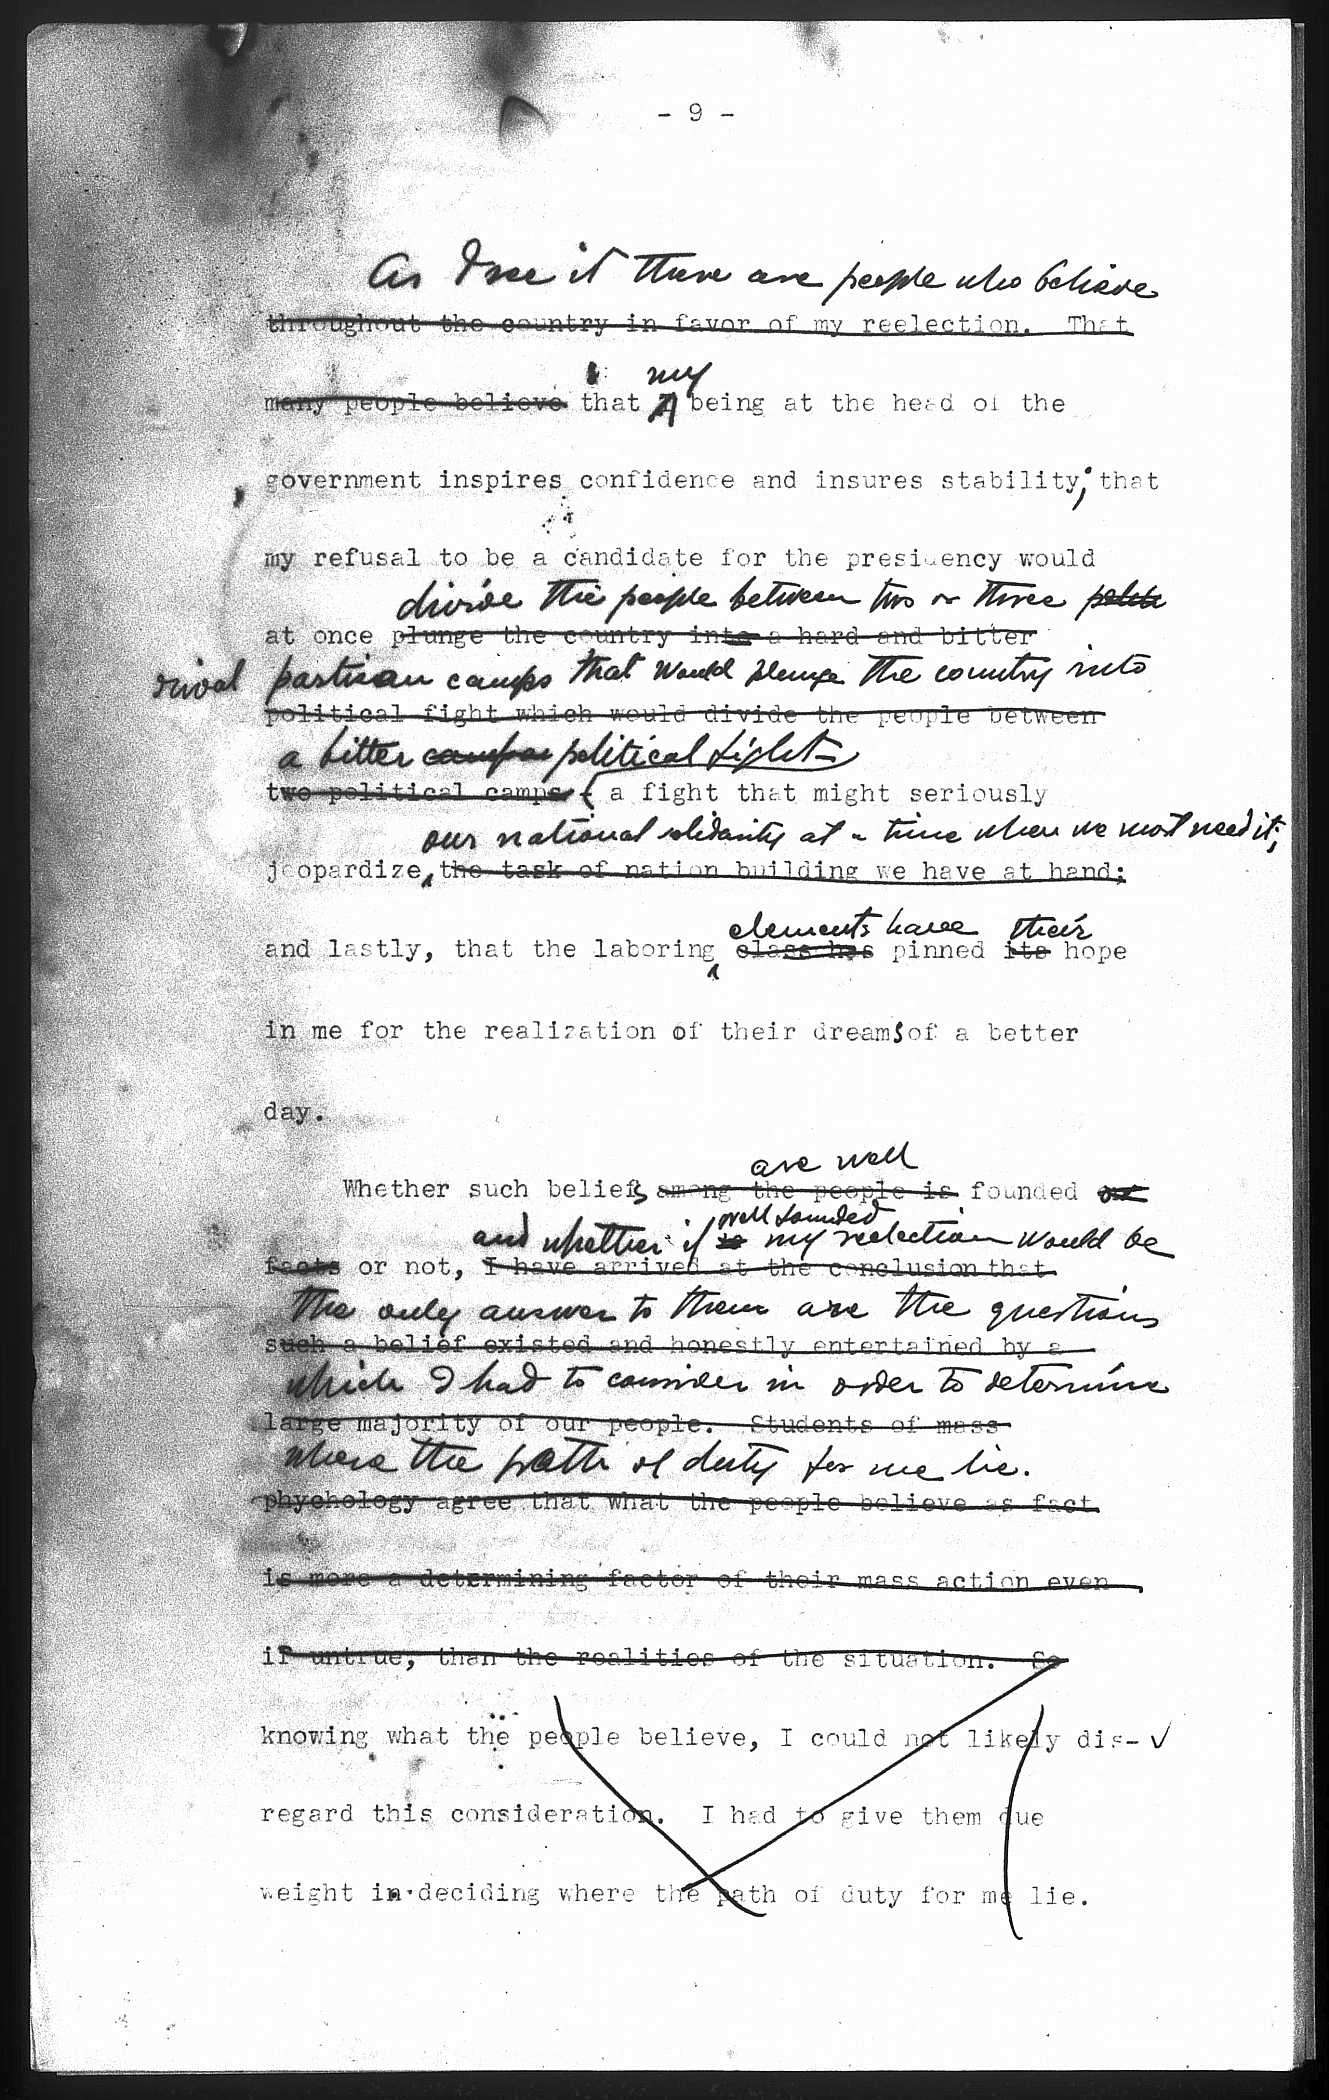 - 9 -
As I see it there are people who believe
throughout the country in favor of my reelection. That
my
many people believe that I being at the head of the
government inspires confidence and insures stability; that
my refusal to be a candidate for the presidency would
divide the people between two or three
at once plunge the country into a hard and bitter
rival partisan camps that would plunge the country into
political fight which would divide the people between
a bitter political fight
two political camps - a fight that might seriously
our national solidarity at a time when we most need it;
jeopardize the task of nation building we have at hand;
elements have their
and lastly, that the laboring class has pinned its hope
in me for the realization of their dreams of a better
day.
are well
Whether such beliefs among the people is founded on
well founded
and whether if my reelection would be
facts or not, I have arrived at the conclusion that
the only answer to them are the questions
such a belief existed and honestly entertained by a
which I had to consider in order to determine
large majority of our people. Students of mass
where the path of duty for me lie.
phychology agree that what the people believe as fact
is more a determining factor of their mass action even
if untrue, than the realities of the situation. So
knowing what the people believe, I could not likely dis- ✓
regard this consideration. I had to give them due
weight in deciding where the path of duty for me lie.